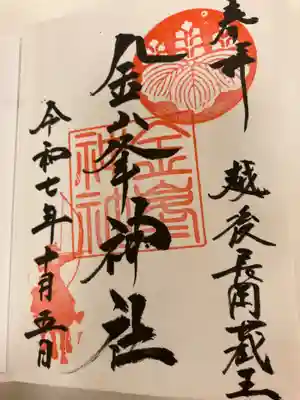 奉拝
越後長岡蔵王
金峯神社
金峯
神社
令和七年十月五日